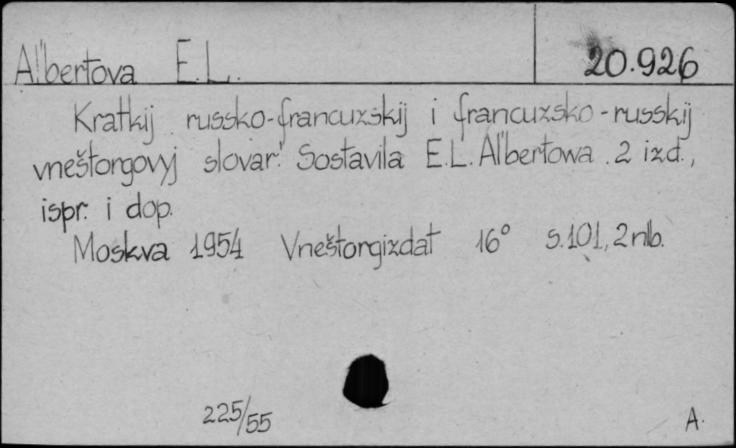 Al'bertova E.L. 20.926
Kratkij russko-francuzskij i francuzsko-russkij
vneštorgovyj slovar'. Sostavila E.L. Al'bertowa. 2 izd.,
ispr. i dop.
Moskva 1954 Vneštorgizdat 16° s. 101, 2 nlb.
225/55 A.